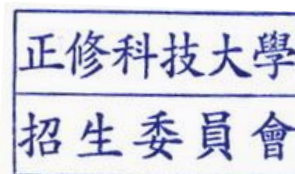 正修科技大學
招生委員會